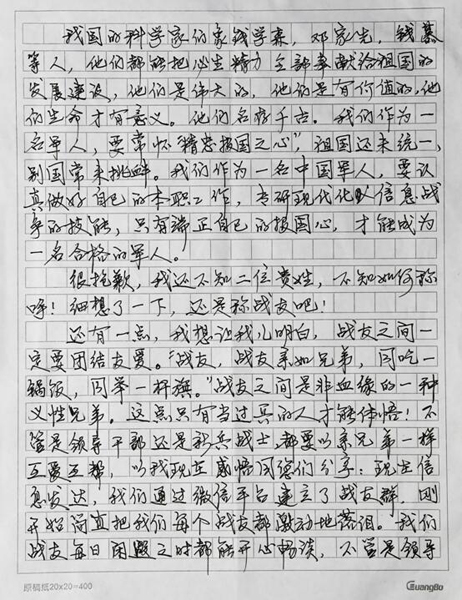 我国的科学家们象钱学森，邓家先，钱慕
等人，他们都能把心生精力全部奉献给祖国的
发展建设，他们是伟大的，他们是有价值的，他
们生命才有意义。他们名彪千古。我们作为一
名军人，要常怀"精忠报国之心"，祖国还未统一，
别国常来挑衅。我们作为一名中国军人，要认
真做好自己的本职工作，专研现代化以信息战
争的技能，只有端正自己的报国心，才能成为
一名合格的军人。
很抱歉，我还不知二位贵姓，不知如何称
呼！细想了一下，还是称战友吧！
还有一点，我想让我儿明白，战友之间一
定要团结友爱。"战友，战友亲如兄弟，同吃一
锅饭，同举一杆旗。"战友之间是非血缘的一种
义性兄弟。这点只有当过兵的人才能体悟！不
管是领导干部还是新兵战士，都要以亲兄弟一样
互爱互帮，以我现在感悟同您们分享：现在信
息发达，我们通过微信平台建立了战友群，刚
开始简直把我们每个战友都激动地落泪。我们
战友每日闲暇之时都能开心畅谈，不管是领导
原稿纸20x20=400
GuangBo